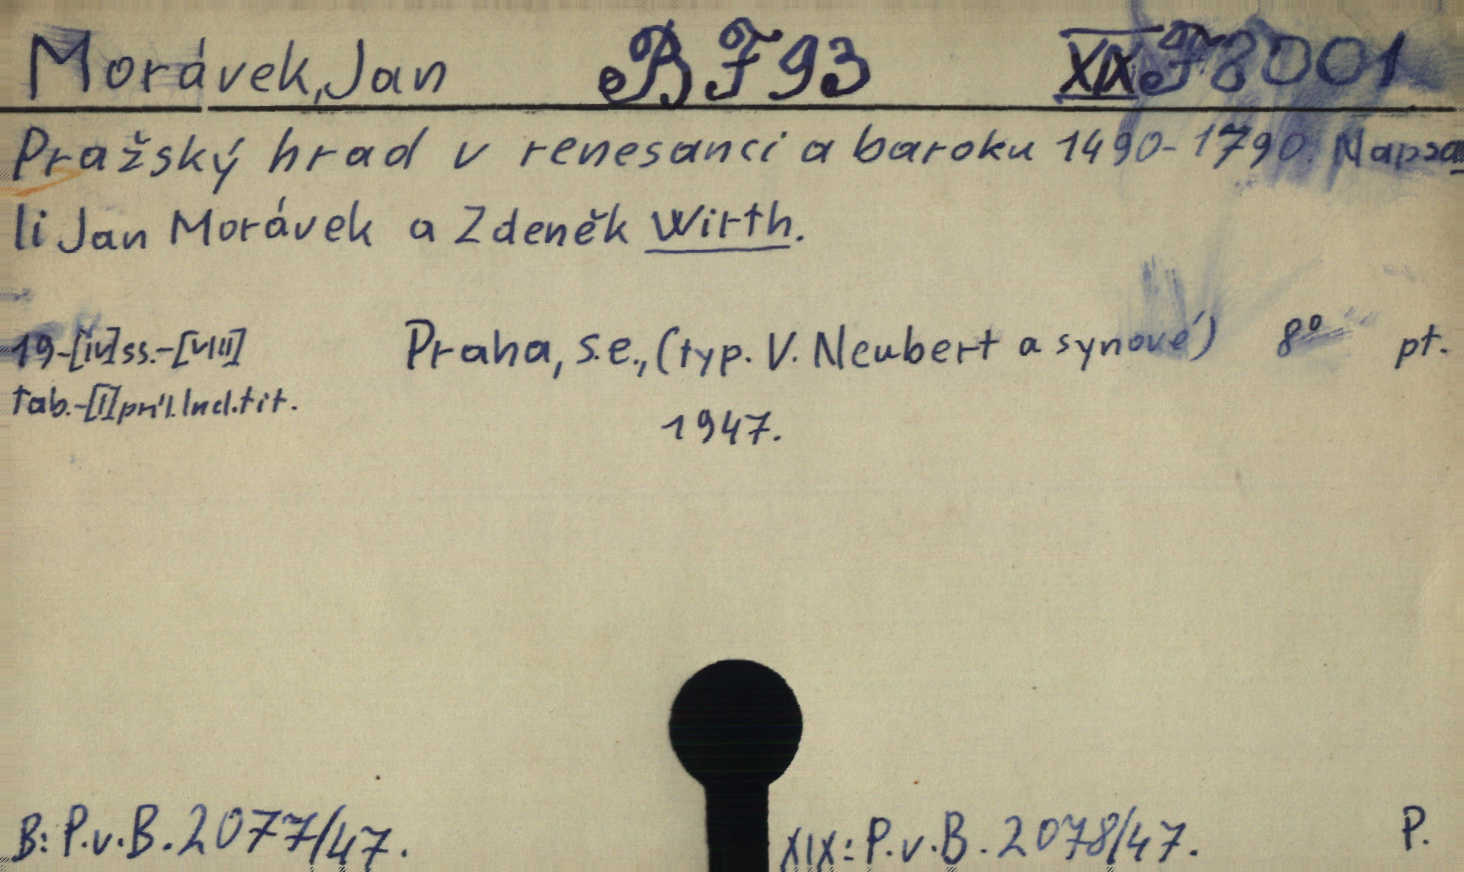 Morávek, Jan BF93 XIXF8001
Pražský hrad v renesanci a baroku 1490-1790. Napsa
li Jan Morávek a Zdeněk Wirth.
19-[iv]ss.-[VIII] Praha, s.e., (typ. V. Neubert a synové) 8° pt.
tab.-[I]příl. Incl. tit.
1947.
B: P.v.B. 2077/47. XIX: P.v.B. 2078/47. P.